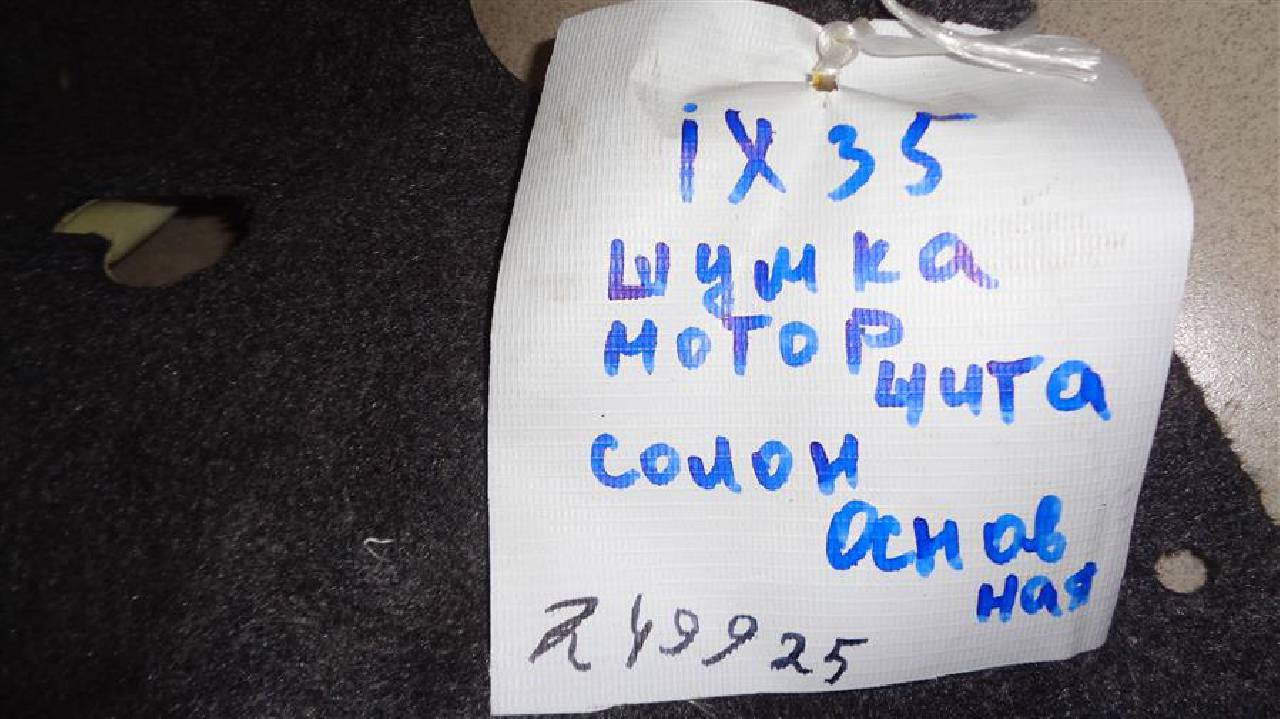 iX35
шумка
мотор
щита
солон
Оснав
ная
Z49925